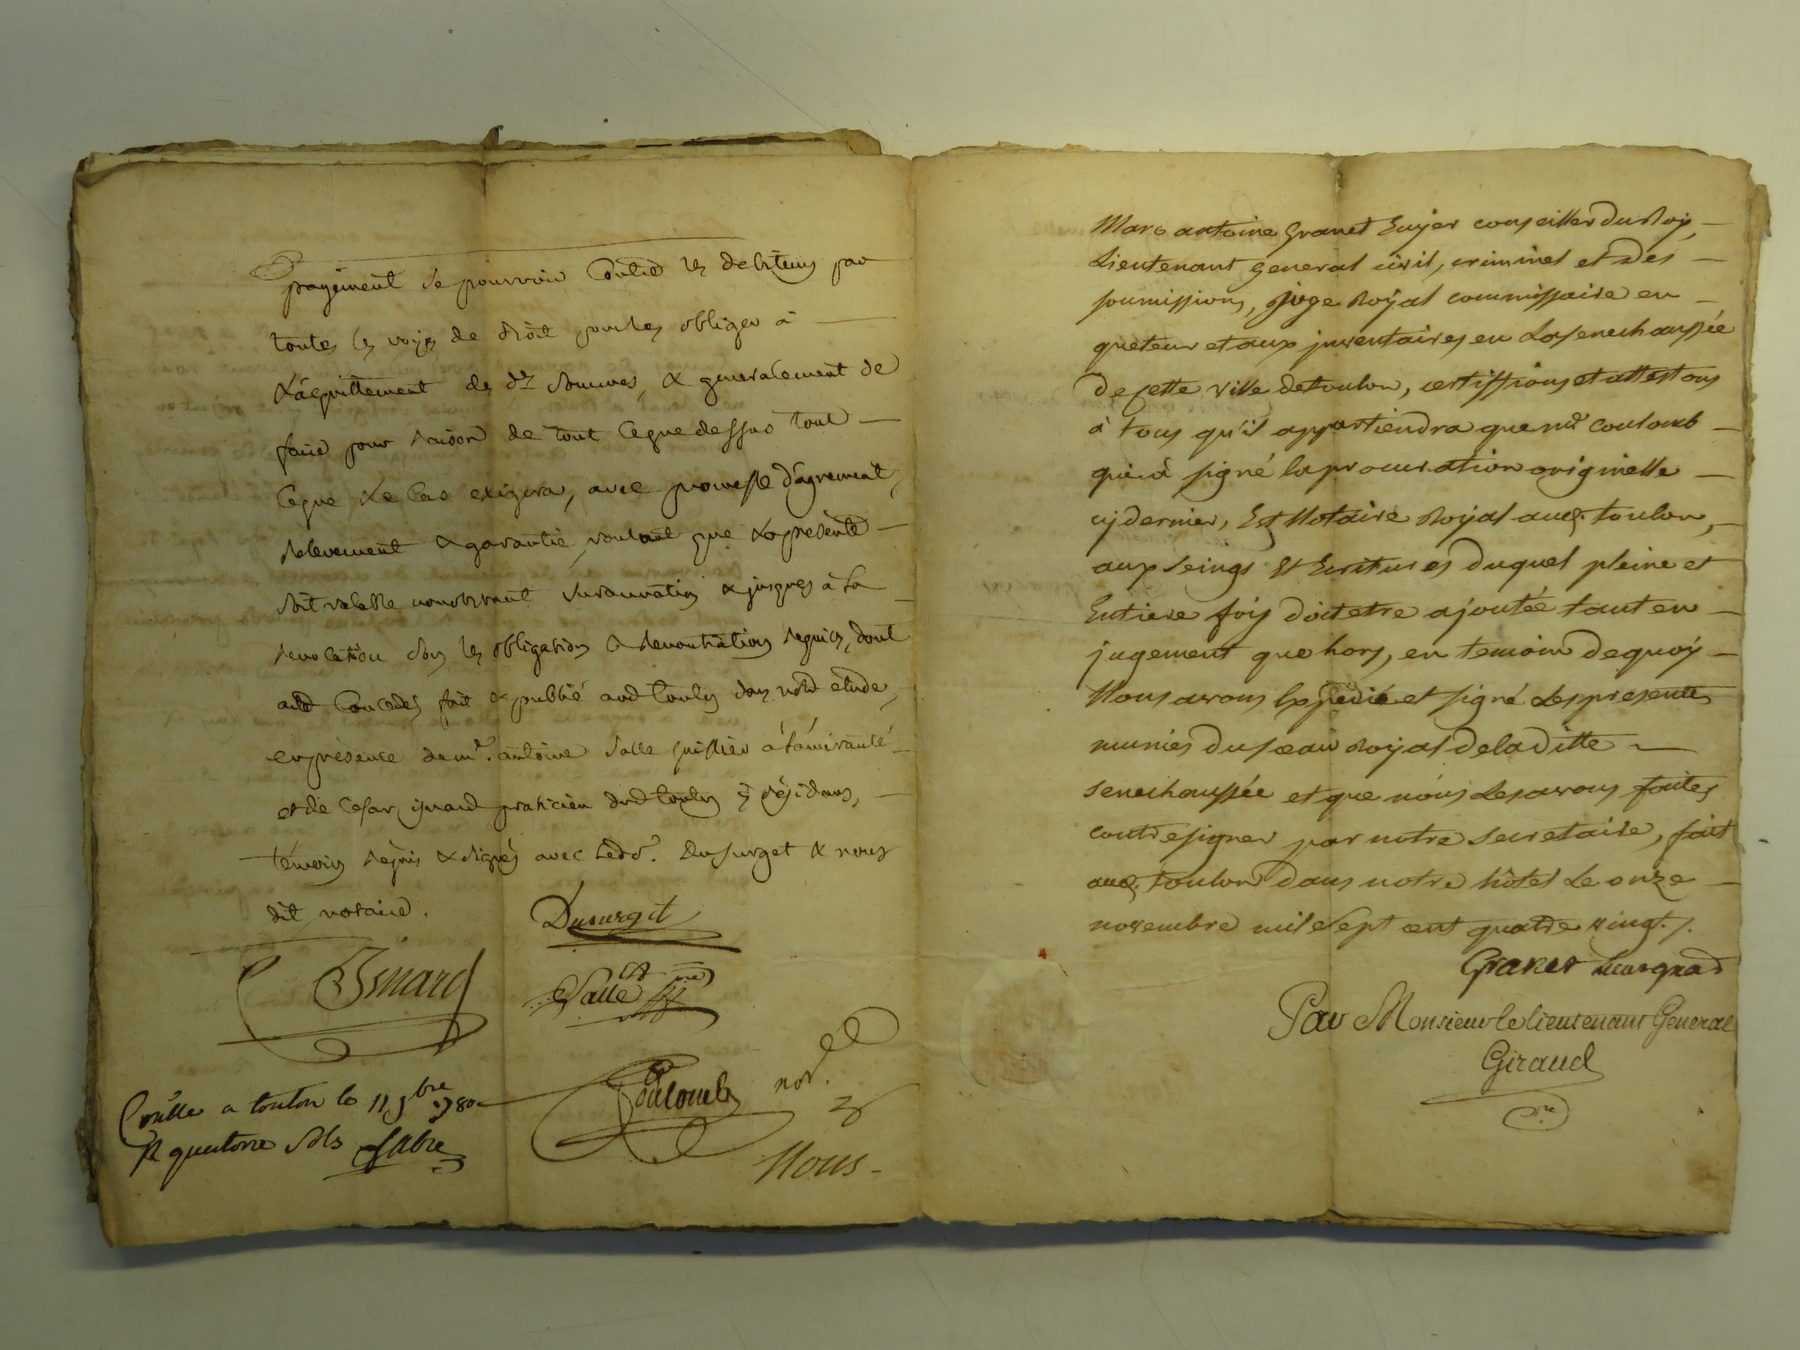 payement se pourvoir Contre les debiteurs par
toutes les voyes de droit pour les obliger à
L'acquittement des dtes Sommes, & generalement de
faire pour raison de tout Ceque dessus tout
Ceque Le Cas exigera, avec promesse d'agrement,
relevement & garantie, voulant que La presente
soit valable nonobstant Surannation & jusques à Sa
revocation Sous les obligations & renonciations requises, dont
acte Concedé, fait & publié aud toulon dans notre etude,
en presence de mr. antoine Salle huissier à l'amirauté
et de Cesar isnard praticien dud toulon y residans,
témoins requis & signés avec Led Sr. Dusurget & nous
dit notaire.
Dusurget
Isnard
Salle
Coulomb not.
Conlle a toulon le 11 9bre 1780
R quatorze Sols Fabre
Nous
Marc antoine Granet Ecuyer conseiller du Roy,
Lieutenant General civil, criminel et des
soumissions, juge Royal commissaire en
queteur et aux inventaires en La senechaussée
de cette ville de toulon, certiffions et attestons
à tous qu'il appartiendra que me coulomb
qui à signé la procuration originelle
cy dernier, Est Notaire Royal aud. toulon,
aux Seings Et Ecritures duquel pleine et
Entiere foy doit etre ajoutée tant en
jugement que hors, en temoin de quoy
Nous avons Expedié et signé Les presentes
munies du sceau Royal de la ditte
senechaussée et que nous Les avons faites
contresigner par notre Secretaire, fait
aud. toulon dans notre hôtel Le onze
novembre mil Sept cent quatre vingt./.
Granet
Par Monsieur le lieutenant General
Giraud